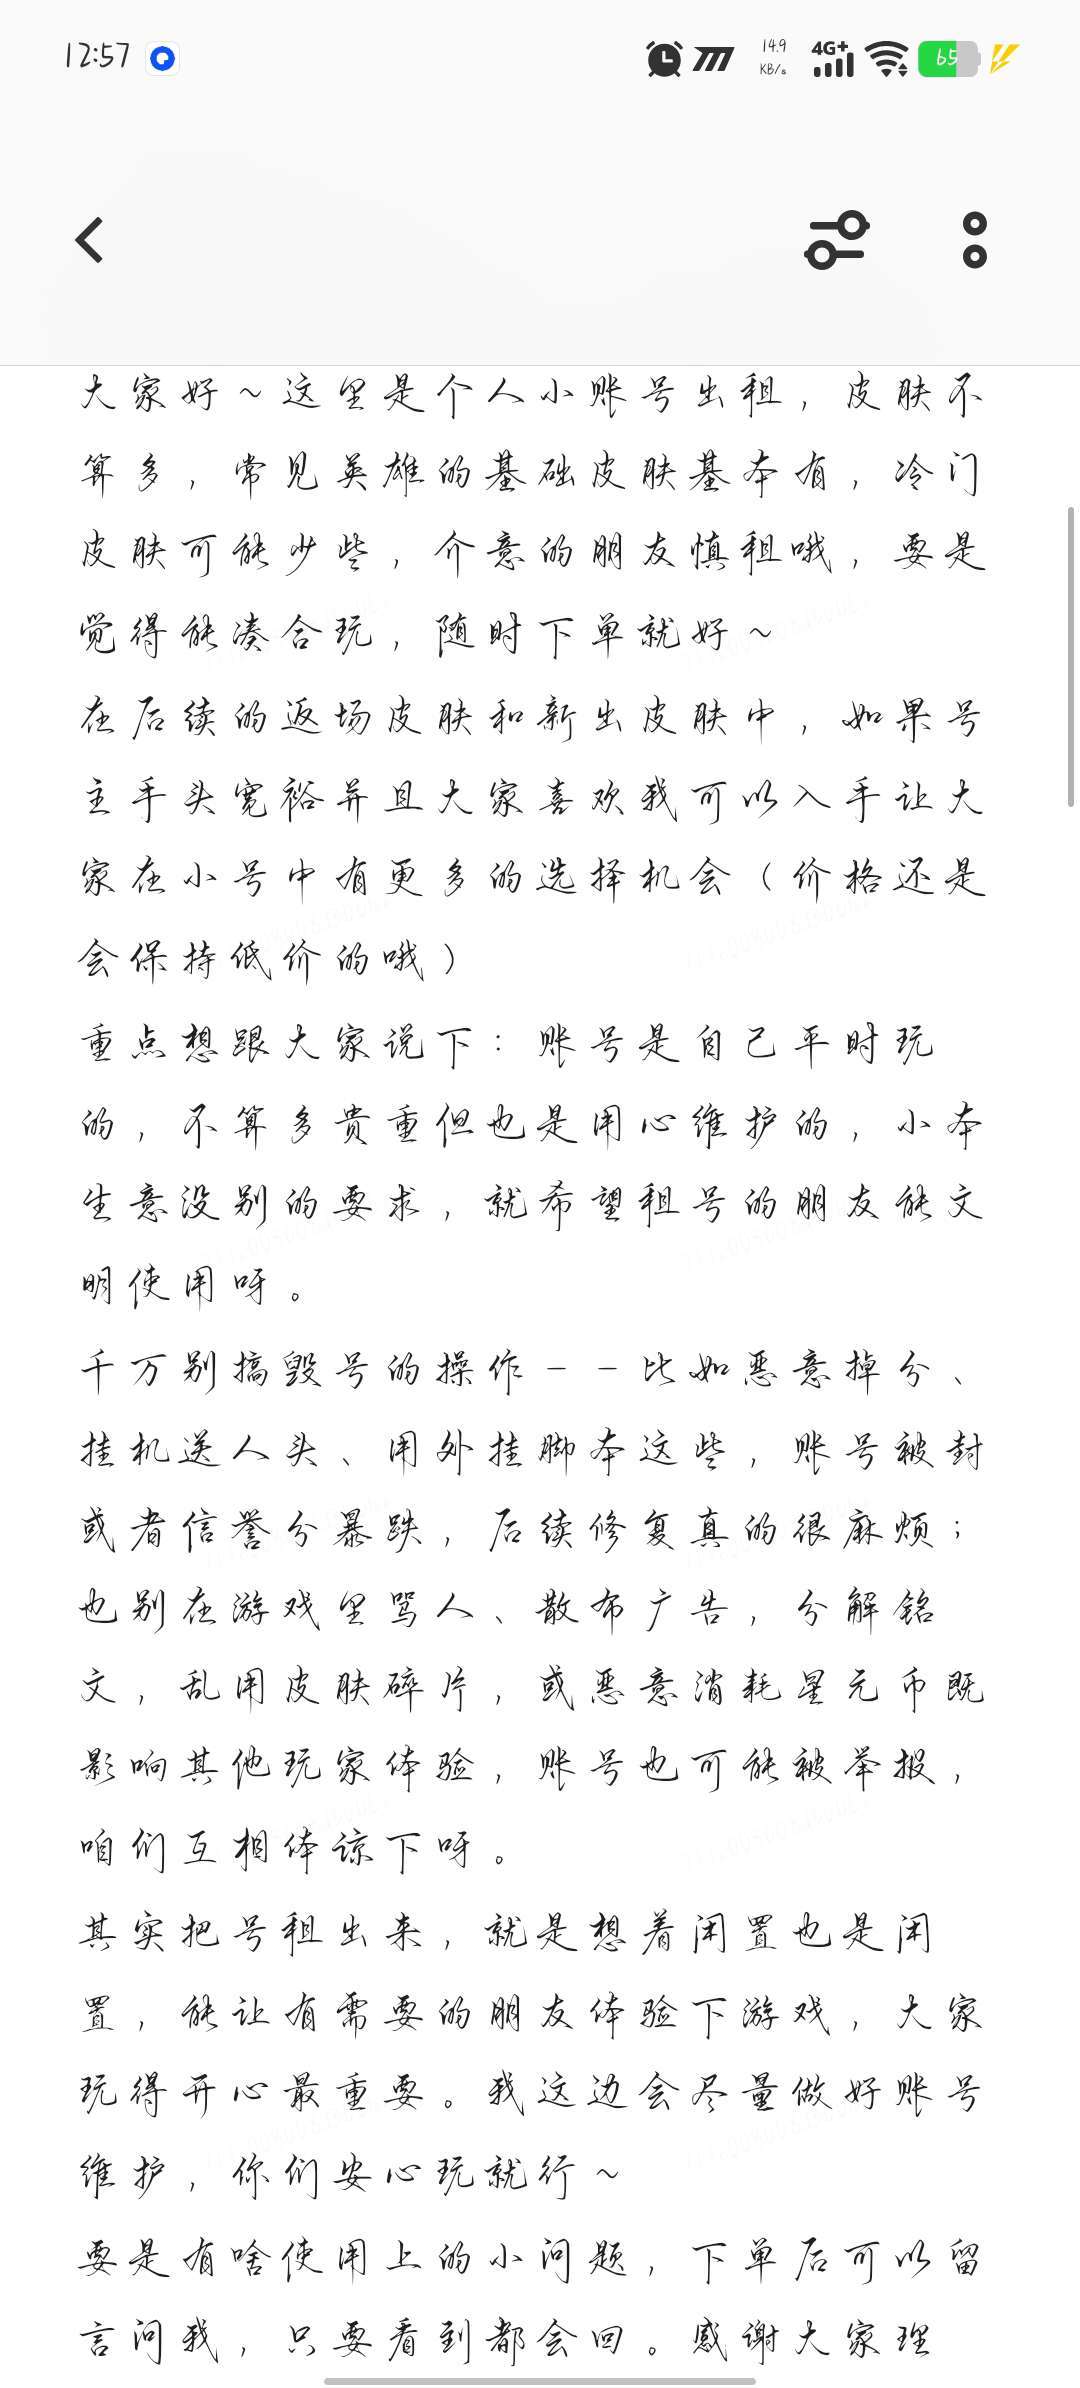 12:57
14.9
KB/s
4G+
65
大家好~这里是个人小账号出租，皮肤不
算多，常见英雄的基础皮肤基本有，冷门
皮肤可能少些，介意的朋友慎租哦，要是
觉得能凑合玩，随时下单就好~
在后续的返场皮肤和新出皮肤中，如果号
主手头宽裕并且大家喜欢我可以入手让大
家在小号中有更多的选择机会（价格还是
会保持低价的哦）
重点想跟大家说下：账号是自己平时玩
的，不算多贵重但也是用心维护的，小本
生意没别的要求，就希望租号的朋友能文
明使用呀。
千万别搞毁号的操作——比如恶意掉分、
挂机送人头、用外挂脚本这些，账号被封
或者信誉分暴跌，后续修复真的很麻烦；
也别在游戏里骂人、散布广告，分解铭
文，乱用皮肤碎片，或恶意消耗星元币既
影响其他玩家体验，账号也可能被举报，
咱们互相体谅下呀。
其实把号租出来，就是想着闲置也是闲
置，能让有需要的朋友体验下游戏，大家
玩得开心最重要。我这边会尽量做好账号
维护，你们安心玩就行~
要是有啥使用上的小问题，下单后可以留
言问我，只要看到都会回。感谢大家理